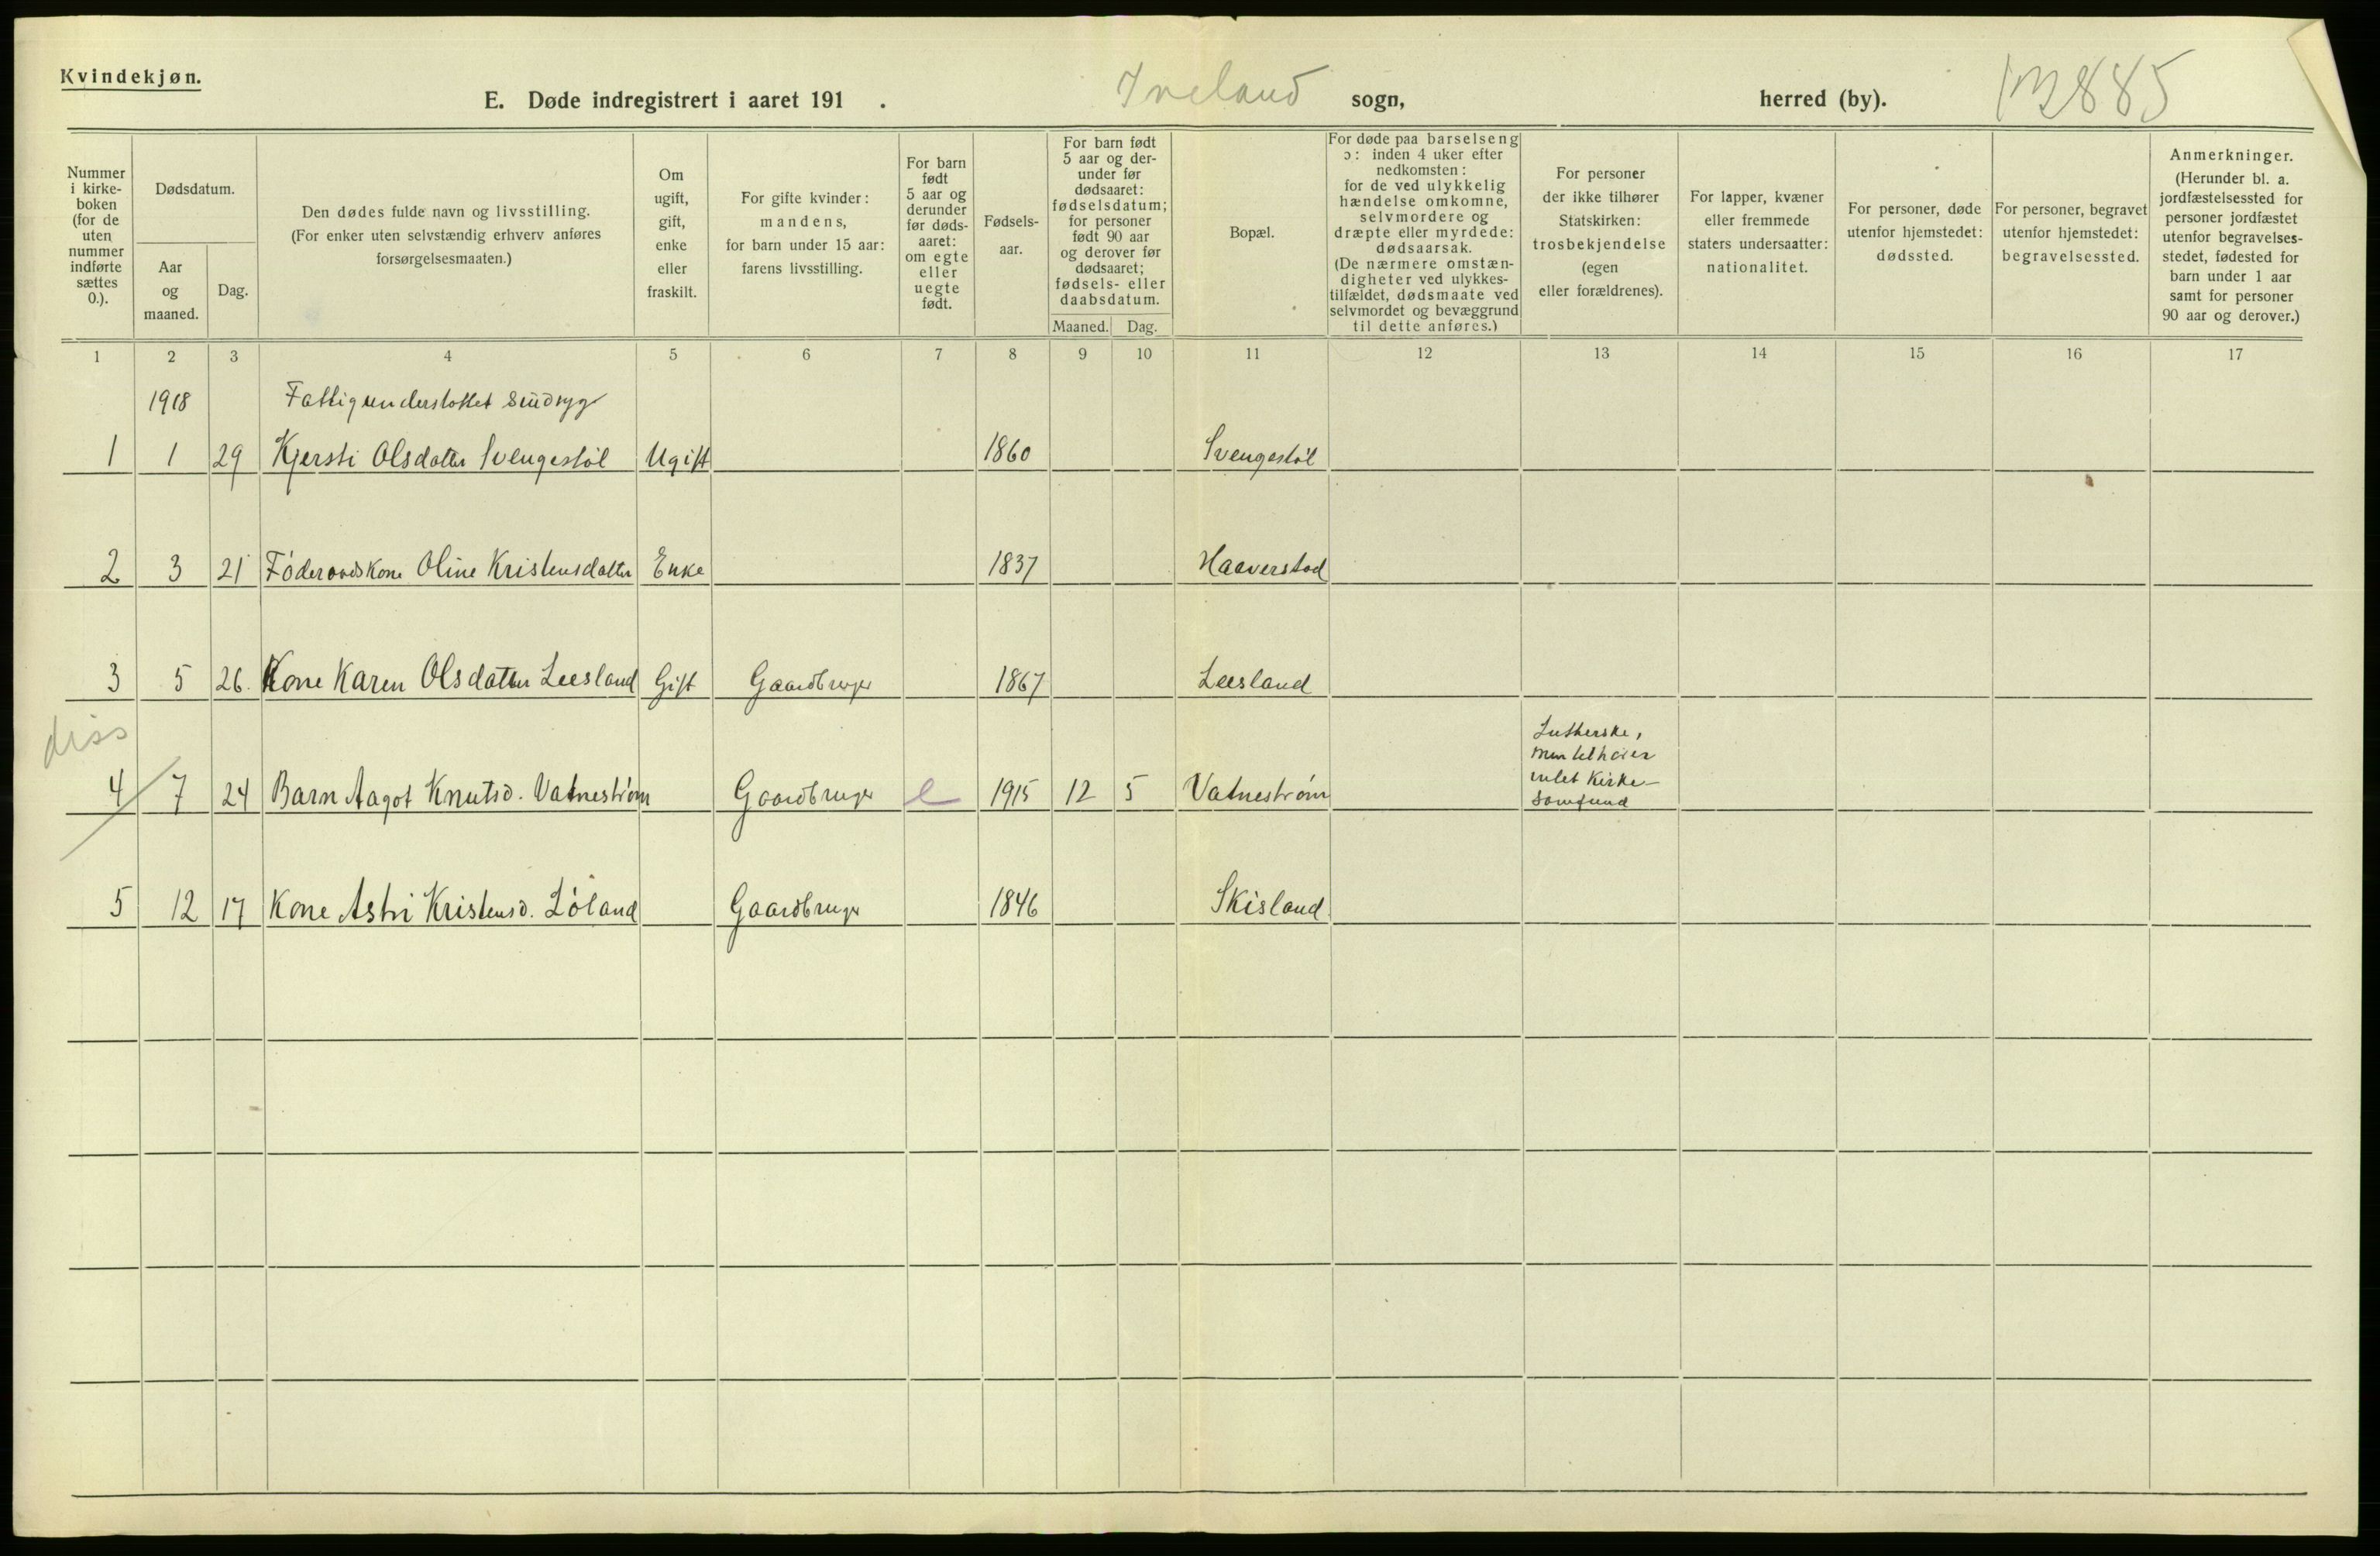 Kvindekjøn.
E. Døde indregistrert i aaret 191 . Iveland sogn, herred (by). 885
Nummer
i kirke-
boken
(for de
uten
nummer
indførte
sættes
0.).
Dødsdatum.
Aar
og
maaned.
Dag.
Den dødes fulde navn og livsstilling.
(For enker uten selvstændig erhverv anføres
forsørgelsesmaaten.)
Om
ugift,
gift,
enke
eller
fraskilt.
For gifte kvinder:
mandens,
for barn under 15 aar:
farens livsstilling.
For barn
født
5 aar og
derunder
før døds-
aaret:
om egte
eller
uegte
født.
Fødsels-
aar.
For barn født
5 aar og der-
under før
dødsaaret:
fødselsdatum;
for personer
født 90 aar
og derover før
dødsaaret;
fødsels- eller
daabsdatum.
Maaned. Dag.
Bopæl.
For døde paa barselseng
ɔ: inden 4 uker efter
nedkomsten:
for de ved ulykkelig
hændelse omkomne,
selvmordere og
dræpte eller myrdede:
dødsaarsak.
(De nærmere omstæn-
digheter ved ulykkes-
tilfældet, dødsmaate ved
selvmordet og bevæggrund
til dette anføres.)
For personer
der ikke tilhører
Statskirken:
trosbekjendelse
(egen
eller forældrenes).
For lapper, kvæner
eller fremmede
staters undersaatter:
nationalitet.
For personer, døde
utenfor hjemstedet:
dødssted.
For personer, begravet
utenfor hjemstedet:
begravelsessted.
Anmerkninger.
(Herunder bl. a.
jordfæstelsessted for
personer jordfæstet
utenfor begravelses-
stedet, fødested for
barn under 1 aar
samt for personer
90 aar og derover.)
1 2 3 4 5 6 7 8 9 10 11 12 13 14 15 16 17
1918 Fattigunderstøttet
1 1 29 Kjersti Olsdatter Svengestøl Ugift 1860 Svengestøl
2 3 21 Føderaadskone Oline Kristensdatter Enke 1837 Haaverstad
3 5 26. Kone Karen Olsdatter Leesland Gift Gaardbruger 1867 Leesland
diss
4 7 24 Barn Aagot Knutsd. Vatnestrøm Gaardbruger e 1915 12 5 Vatnestrøm
Lutherske,
men tilhører
intet Kirke-
samfund
5 12 17 Kone Astri Kristensd. Løland Gaardbruger 1846 Skisland